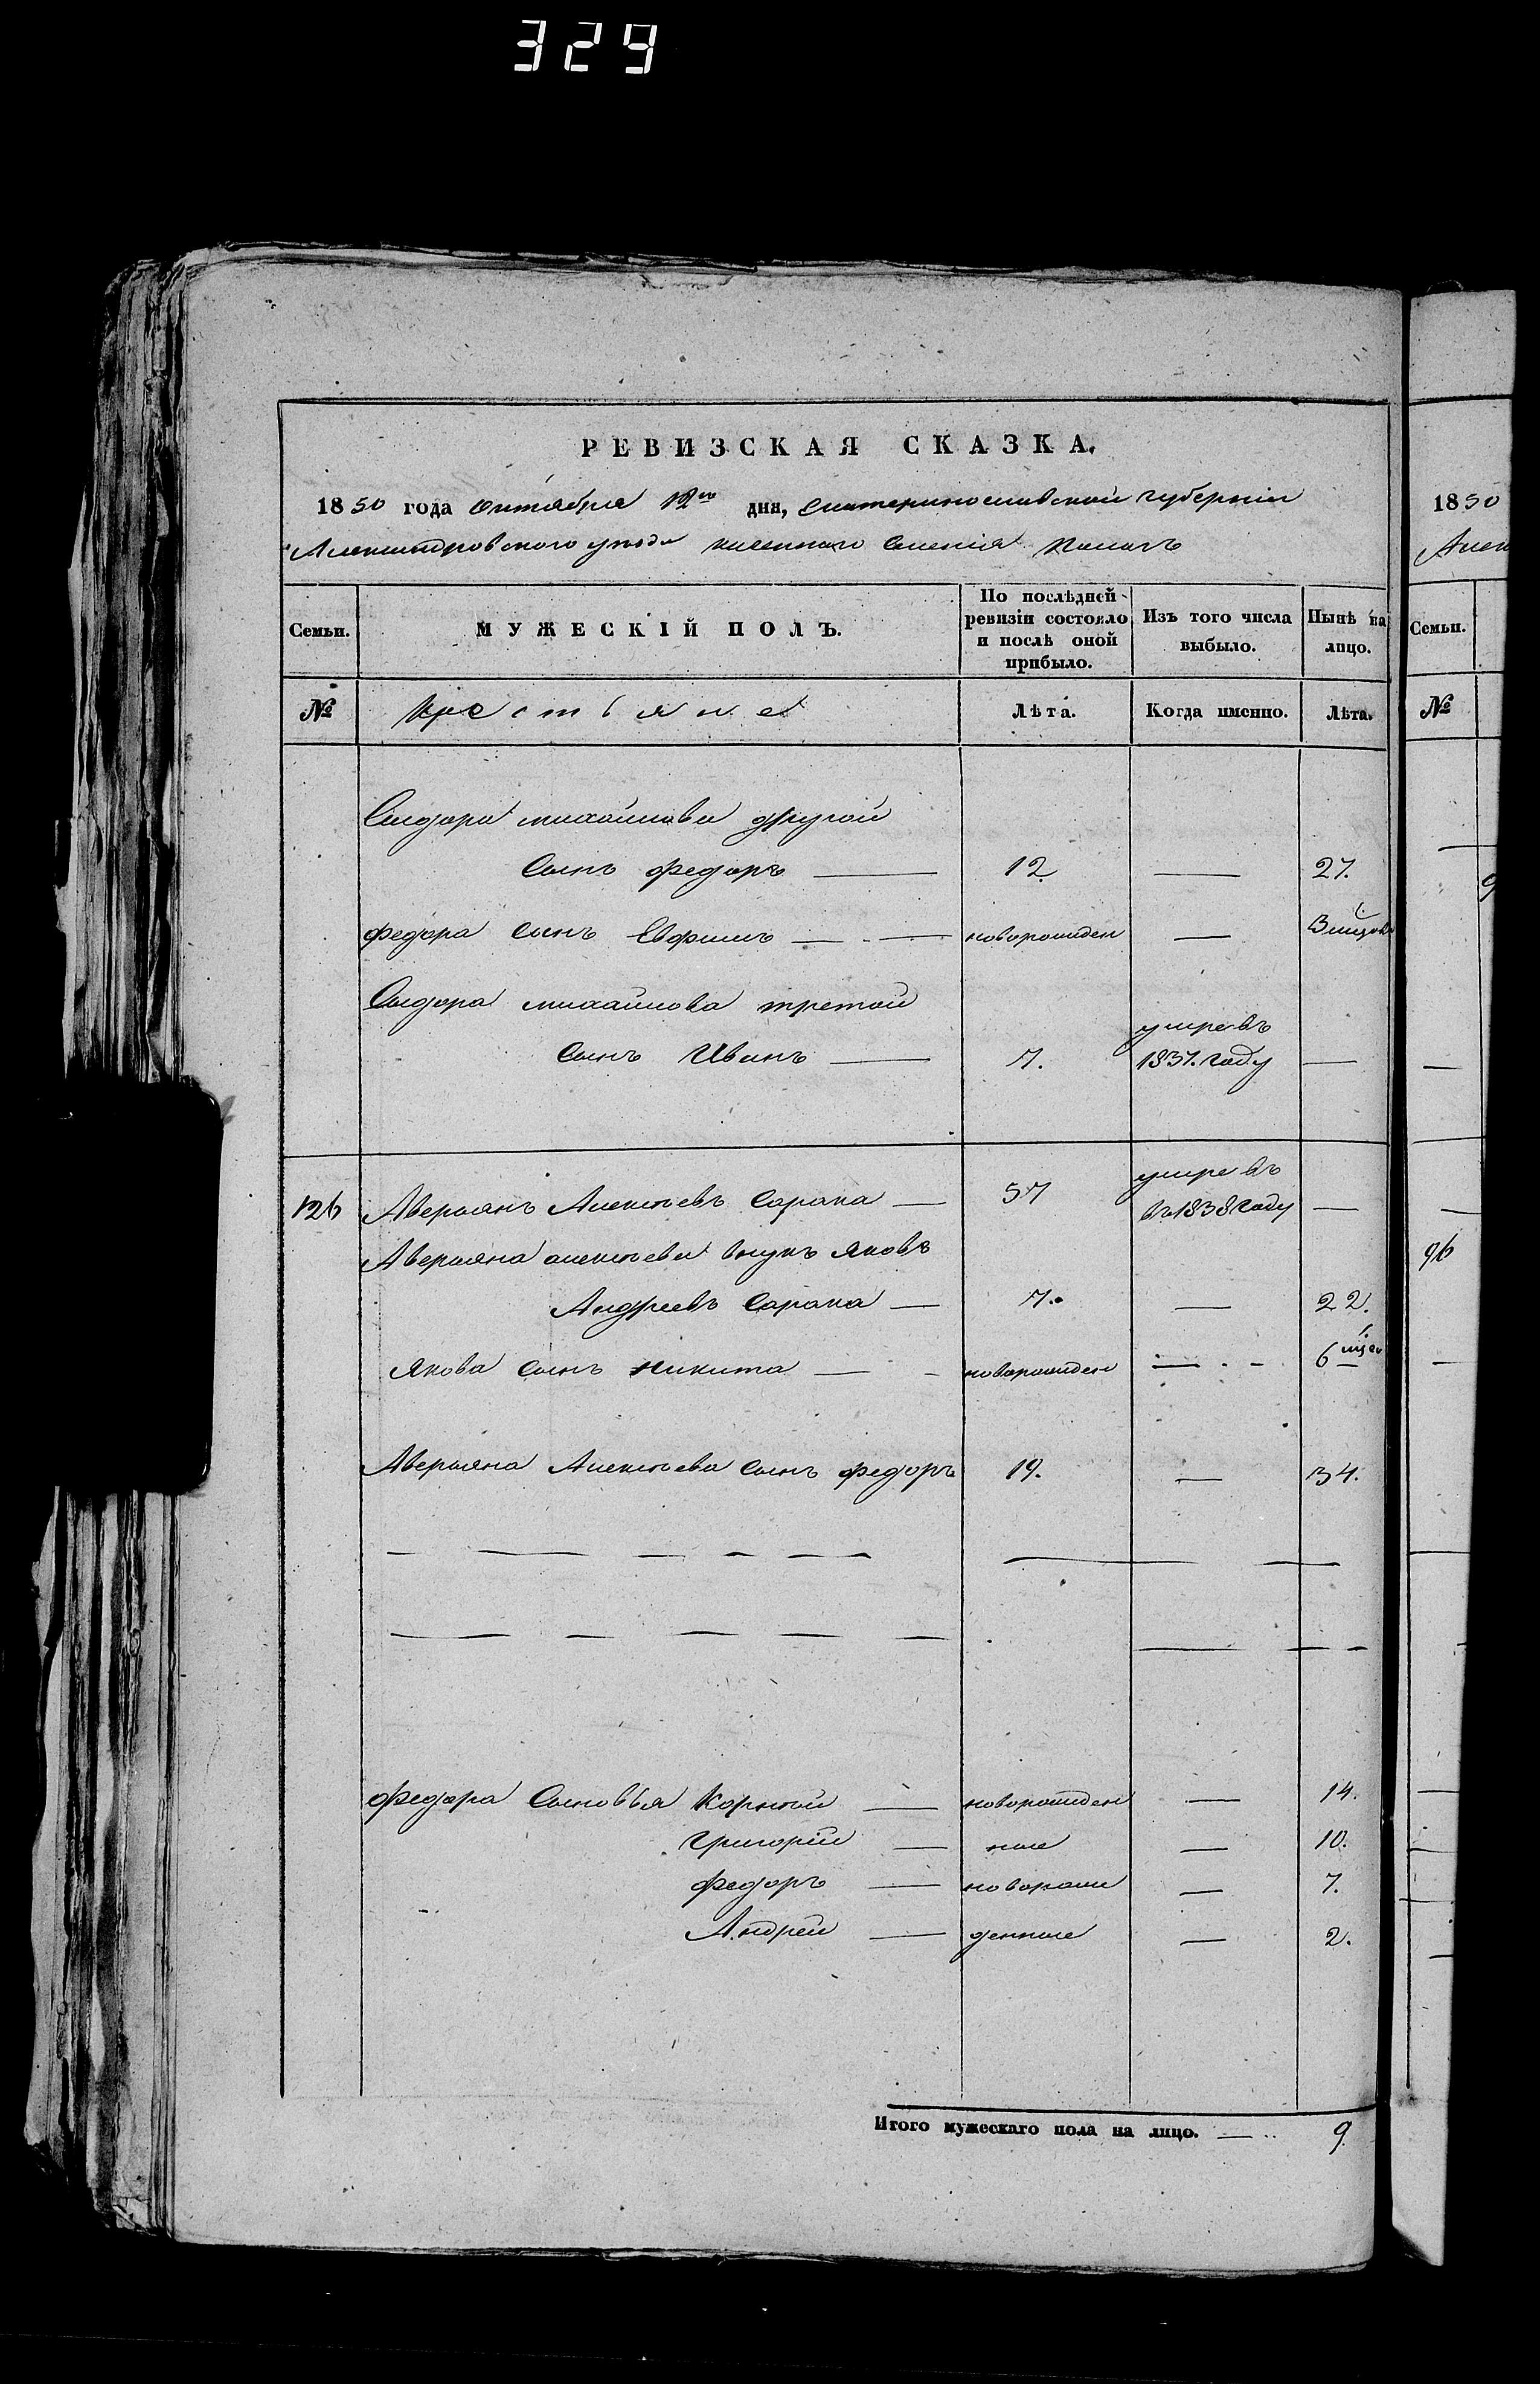 329
РЕВИЗСКАЯ СКАЗКА.
1850 года Октября 12го дня, Екатеринославской губернии
Александровского уезда казенного Селения
Семьи.
МУЖЕСКІЙ ПОЛЪ.
По послѣдней ревизіи состояло и послѣ оной прибыло.
Изъ того числа выбыло.
Нынѣ на лицо.
№
Крестьяне
Лѣта.
Когда именно.
Лѣта.
Сидора михайлова другой
Сынъ федоръ — 12 — 27.
федора Сынъ Евфимъ — новорожден —
Сидора михайлова третой
умре въ
Сынъ Иванъ — 7. 1837. году —
умре въ
126 Аверьянъ Алексеевъ Сорока — 57 въ 1838 году —
Аверьяна алексеева внукъ Яковъ
Андреевъ Сорока — 7. — 22.
Якова Сынъ Никита — новорожден — 6 мѣся
Аверьяна Алексеева Сынъ федоръ 19. — 34.
федора Сыновья Корней — новорожден — 14.
Григорий — ные — 10.
федоръ — новорож — 7.
Андрей — денные — 2.
Итого мужескаго пола на лицо. — 9
1850
Алек
Семьи.
№
96